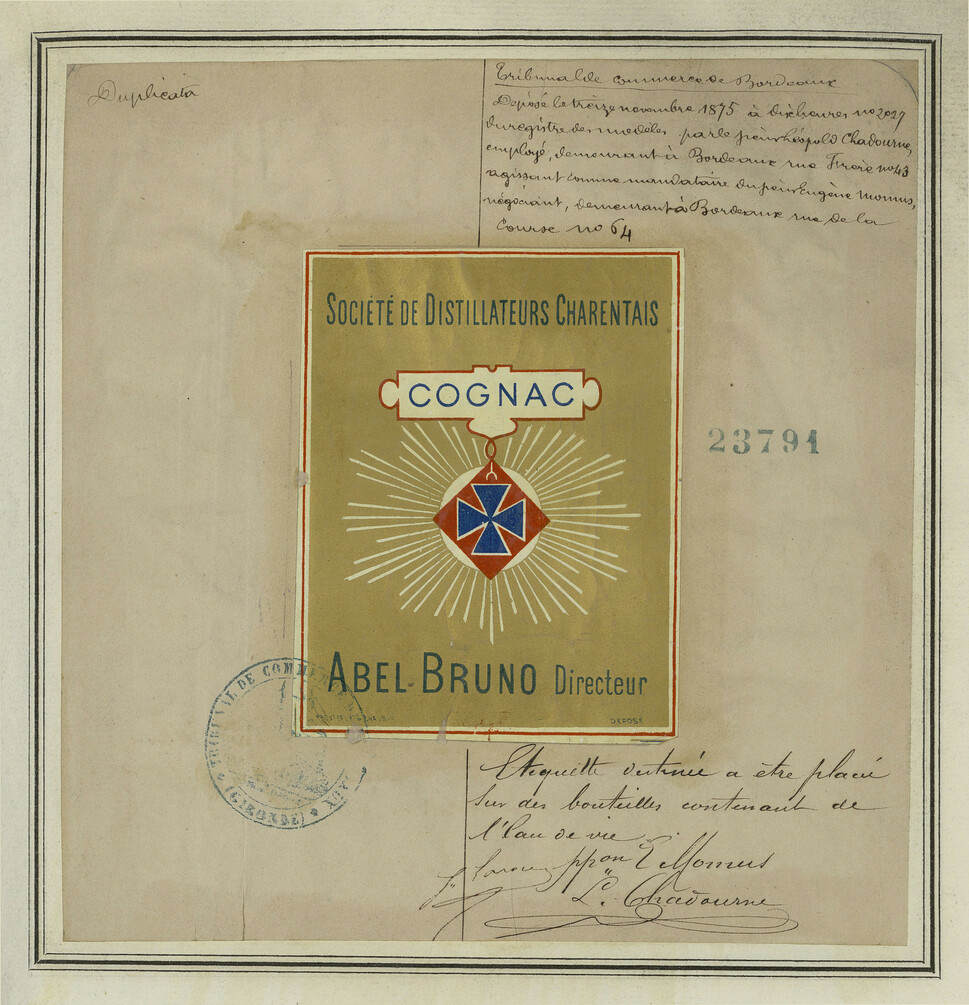 Duplicata
Tribunal de commerce de Bordeaux
Déposé le treize novembre 1875 à dix heures no 2027
du registre des modèles par le sieur Léopold Chadourne,
employé, demeurant à Bordeaux rue Frère no 43
agissant comme mandataire du sieur Eugène Momus,
négociant, demeurant à Bordeaux rue de la
Course no 64
SOCIÉTÉ DE DISTILLATEURS CHARENTAIS
COGNAC
23791
ABEL-BRUNO Directeur
DÉPOSÉ
TRIBUNAL DE COMMERCE
(GIRONDE)
Etiquette destinée a être placée
sur des bouteilles contenant de
l'eau de vie
ppon E Momus
L. Chadourne